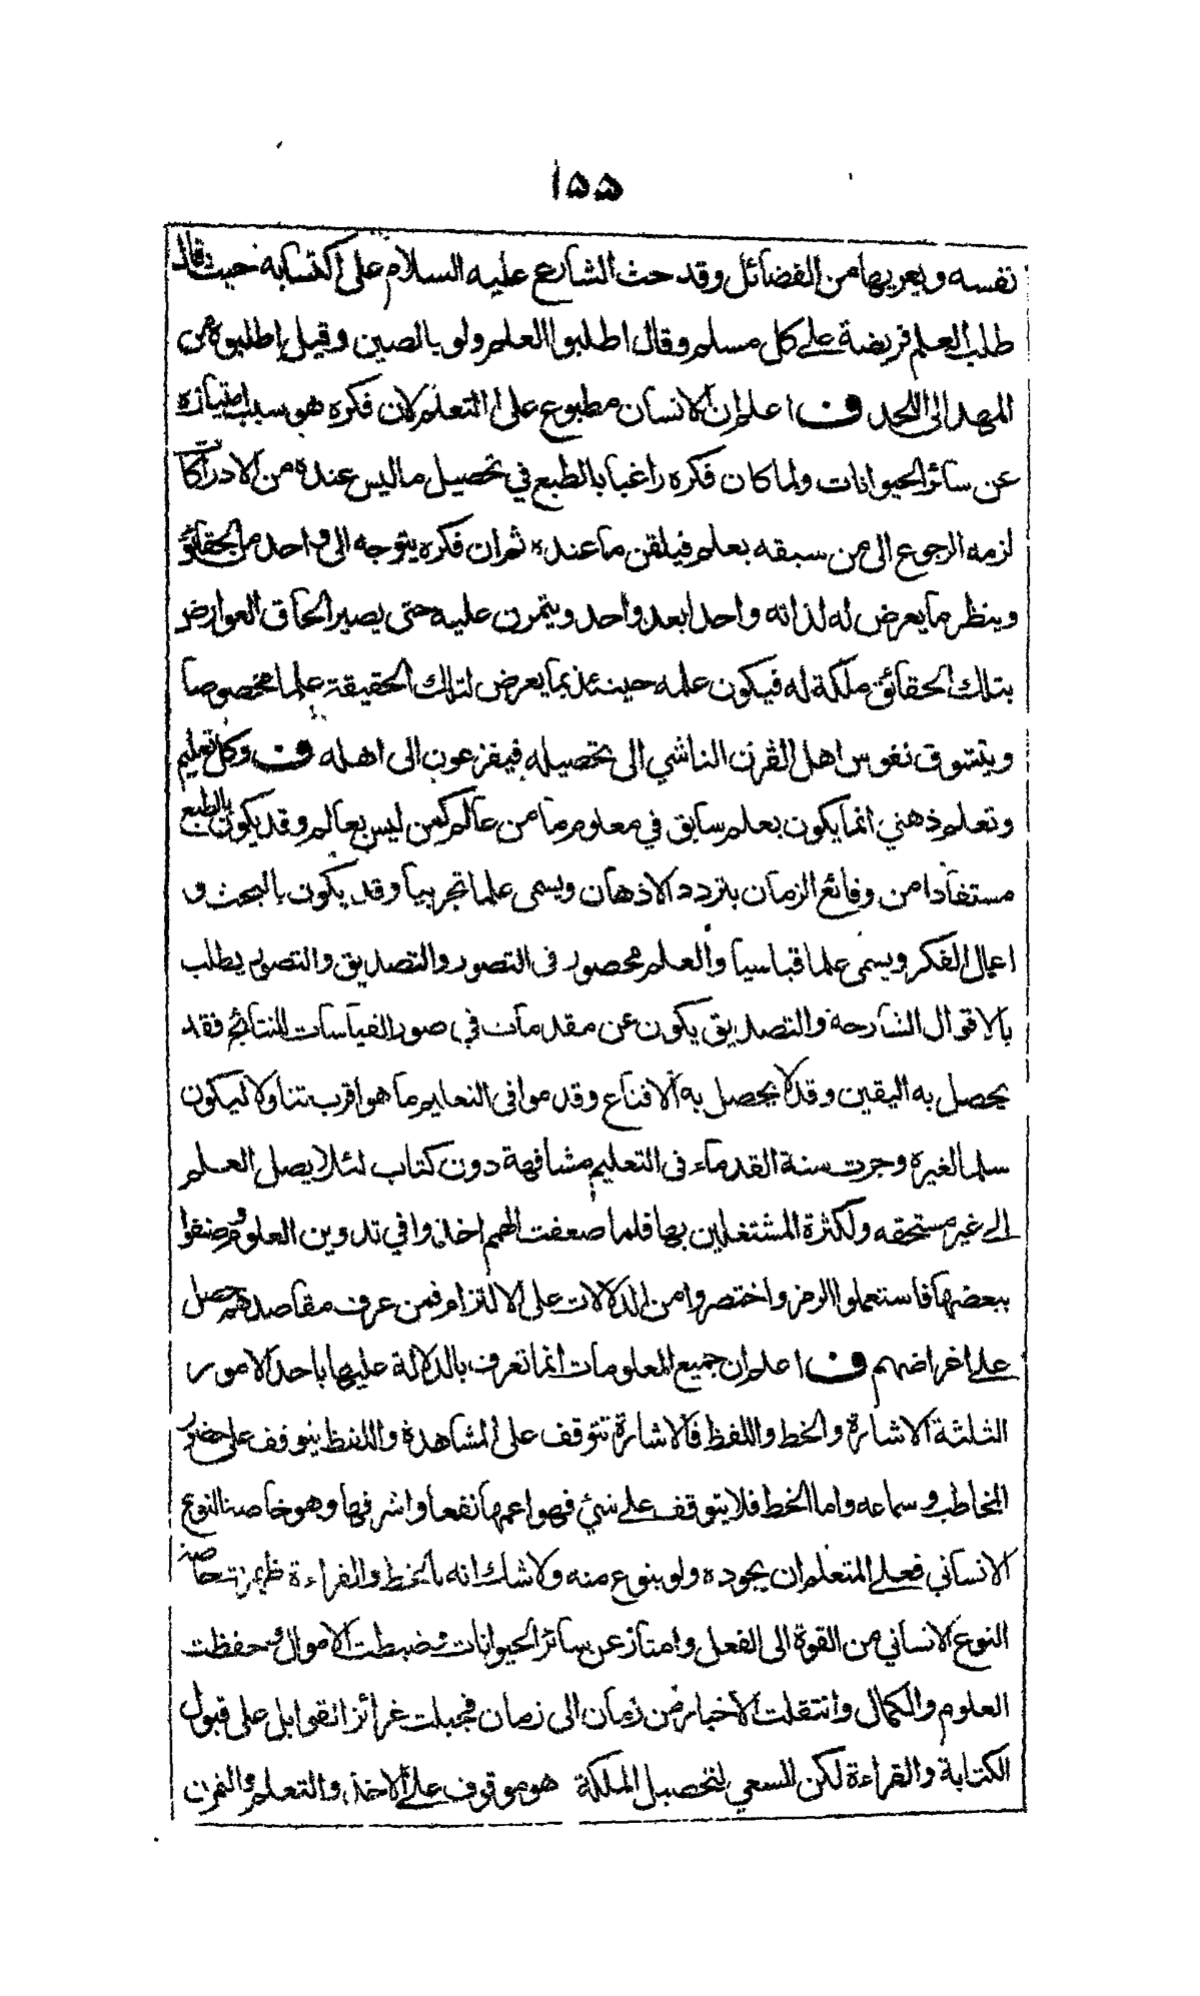 ١٥٥
نفسه ويعريها من الفضائل وقد حث الشارع عليه السلام على اكتسابه حيث قال
طلب العلم فريضة على كل مسلم وقال اطلبوا العلم ولو بالصين وقيل اطلبوه من
المهد الى اللحد ف اعلم ان الانسان مطبوع على التعلم لان فكره هو سبب امتيازه
عن سائر الحيوانات ولما كان فكره راغبا بالطبع في تحصيل ما ليس عنده من الادراكات
لزمه الرجوع الى من سبقه بعلم فيلقن ما عنده ثم ان فكره يتوجه الى واحد من الحقائق
وينظر ما يعرض له لذاته واحدا بعد واحد ويتمرن عليه حتى يصير الحاق العوارض
بتلك الحقائق ملكة له فيكون علمه حينئذ بما يعرض لتلك الحقيقة علما مخصوصا
ويتشوق نفوس اهل القرن الناشي الى تحصيله فيفزعون الى اهله ف وكل تعليم
وتعلم ذهني انما يكون بعلم سابق في معلوم ما من عالم كمن ليس بعالم وقد يكون بالطبع
مستفادا من وقائع الزمان بتردد الاذهان ويسمى علما تجربيا وقد يكون بالبحث و
اعمال الفكر ويسمى علما قياسيا والعلم محصور فى التصور والتصديق والتصور يطلب
بالاقوال الشارحة والتصديق يكون عن مقدمات في صور القياسات للنتائج فقد
يحصل به اليقين وقد لا يحصل به الا قناع وقدموا فى التعليم ما هو اقرب تناولا ليكون
سلما لغيره وجرت سنة القدماء فى التعليم مشافهة دون كتاب لئلا يصل العلم
الى غير مستحقه ولكثرة المشتغلين بها فلما ضعفت الهمم اخذوا في تدوين العلوم وضنقوا
ببعضها فاستعملوا الرمز واختصروا من الدلالات على الالتزام فمن عرف مقاصدهم حصل
على اغراضهم ف اعلم ان جميع المعلومات انما تعرف بالدلالة عليها باحد الامور
الثلثة الاشارة والخط واللفظ فالاشارة تتوقف على المشاهدة واللفظ يتوقف على حضور
المخاطب وسماعه واما الخط فلا يتوقف على شئ فهو اعمها نفعا واشرفها وهو خاصة النوع
الانساني فعلى المتعلم ان يجوده ولو بنوع منه ولا شك انه بالخط والقراءة ظهرت خاصة
النوع الانساني من القوة الى الفعل وامتاز عن سائر الحيوانات وضبطت الاموال وحفظت
العلوم والكمال وانتقلت الاخبار من زمان الى زمان فجبلت غرائز القوابل على قبول
الكتابة والقراءة لكن السعي لتحصيل الملكة هو موقوف على الاخذ والتعلم والتمرن